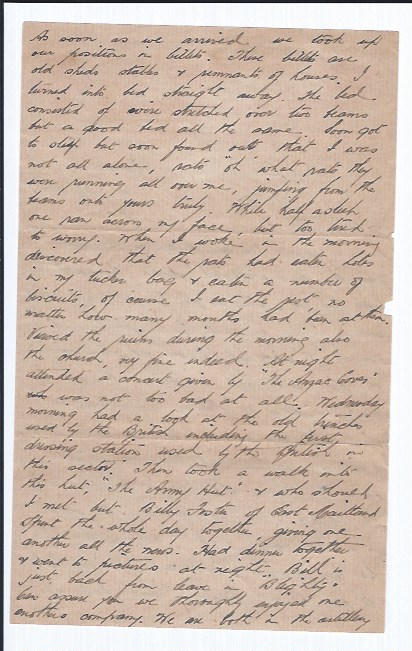 As soon as we arrived we took up
our positions in billets. These billets are
old sheds stalls & remnants of houses. I
turned into bed straight away. The bed
consisted of wire stretched over two beams
but a good bed all the same. Soon got
to sleep but soon found out that I was
not all alone, rats "oh what rats they
were running all over me, jumping from the
beams onto yours truly. While half asleep
one ran across my face, but too tired
to worry. When I woke in the morning
discovered that the rats had eaten holes
in my tucker bag & eaten a number of
biscuits, of course I eat the rest no
matter how many mouths had been at them.
Viewed the ruins during the morning also
the church, very fine indeed. At night
attended a concert given by "The Anzac Coves"
was not too bad at all. Wednesday
morning had a look at the old trenches
used by the British including the first
dressing station used by the British in
this sector. Then took a walk into
this hut, "The Army Hut" & who should
I met but Billy of East Maitland
Spent the whole day together giving one
another all the news. Had dinner together
& went to pictures at night. Bill is
just back from leave in "Blighty"
can assure you we thoroughly enjoyed one
anothers company. We are both in the artillery